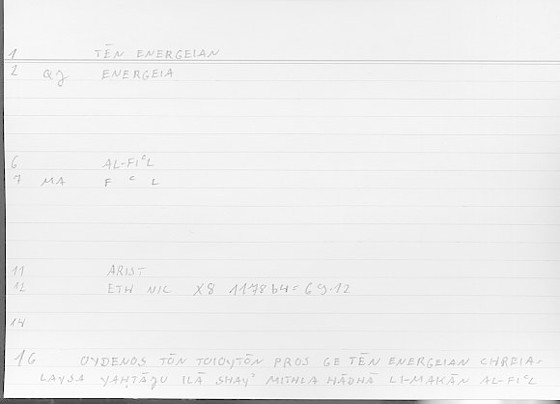 1 TĒN ENERGEIAN
2 QJ ENERGEIA
6 AL-FIᶜL
7 MA F ᶜ L
11 ARIST
12 ETH NIC X8 1178b4 = 69.12
14
16 OYDENOS TŌN TOIOYTŌN PROS GE TĒN ENERGEIAN CHREIA-
LAYSA YAḤTĀJU ILĀ SHAYʾ MITHLA HĀDHĀ LI-MAKĀN AL-FIᶜL